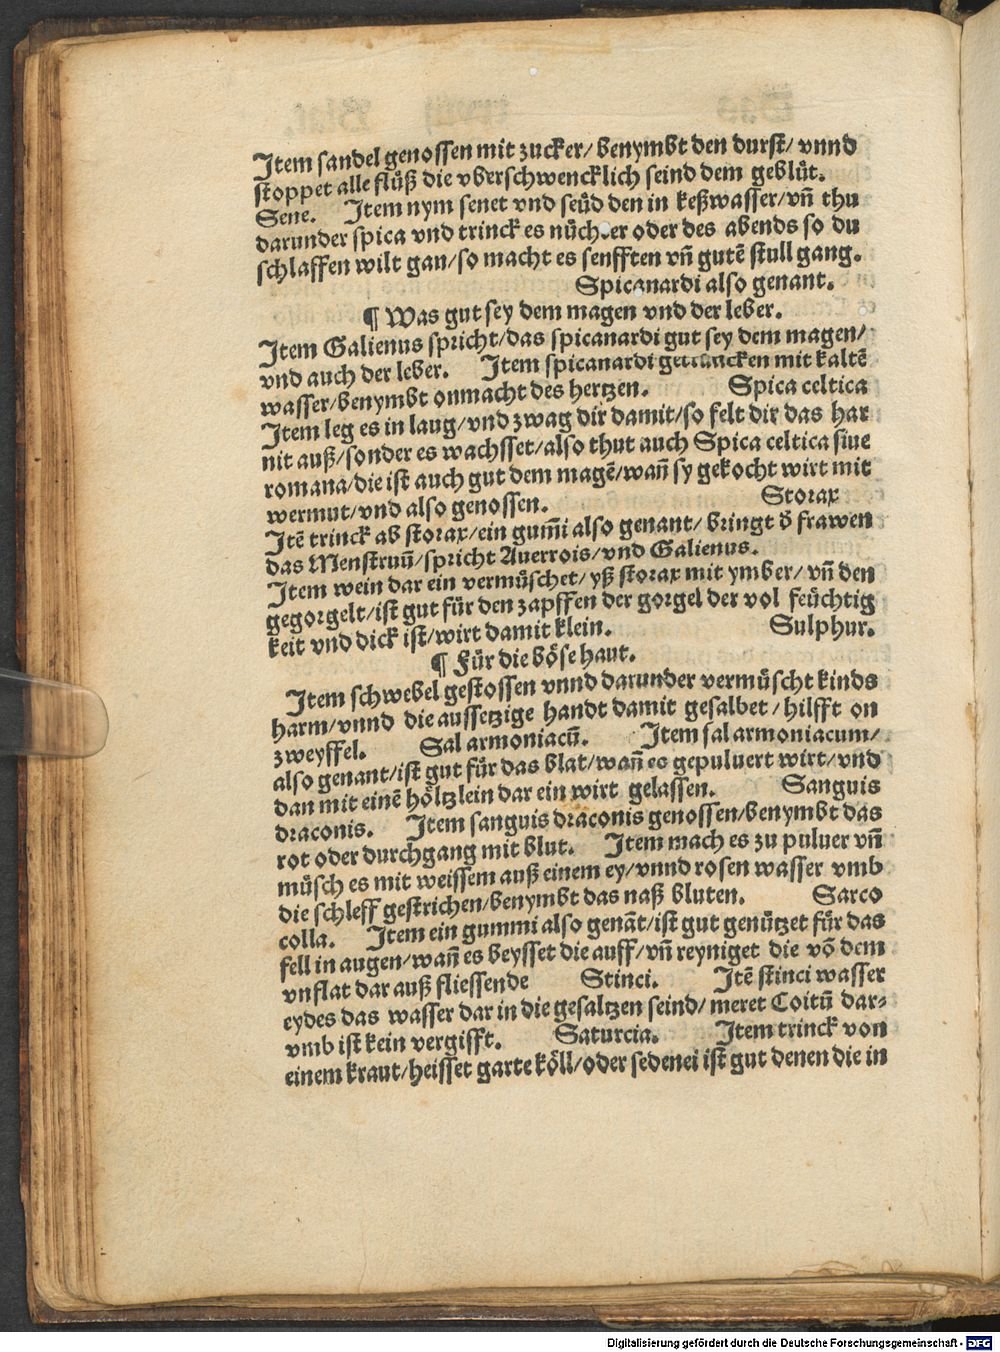 Item sandel genossen mit zucker/ benymbt den durst/ vnnd
stoppet alle flüß die vberschwencklich seind dem geblüt.
Sene. Item nym senet vnd seüd den in keßwasser/ vñ thu
darunder spica vnd trinck es nüchter oder des abends so du
schlaffen wilt gan/ so macht es senfften vñ gutē stull gang.
Spicanardi also genant.
¶ Was gut sey dem magen vnd der leber.
Item Galienus spricht/ das spicanardi gut sey dem magen/
vnd auch der leber. Item spicanardi getruncken mit kaltē
wasser/ benymbt onmacht des hertzen. Spica celtica
Item leg es in laug/ vnd zwag dir damit/ so felt dir das har
nit auß/ sonder es wachsset/ also thut auch Spica celtica siue
romana/ die ist auch gut dem magē/ wañ sy gekocht wirt mit
wermut/ vnd also genossen. Storax
Itē trinck ab storax/ ein gum̄i also genant/ bringt d̕ frawen
das Menstruū/ spricht Auerrois/ vnd Galienus.
Item wein dar ein vermüschet/ yß storax mit ymber/ vñ den
gegorgelt/ ist gut für den zapffen der gorgel der vol feüchtig
keit vnd dick ist/ wirt damit klein. Sulphur.
¶ Für die böse haut.
Item schwebel gestossen vnnd darunder vermüscht kinds
harm/ vnnd die aussetzige handt damit gesalbet/ hilfft on
zweyffel. Sal armoniacū. Item sal armoniacum/
also genant/ ist gut für das blat/ wañ es gepuluert wirt/ vnd
dan mit einē höltzlein dar ein wirt gelassen. Sanguis
draconis. Item sanguis draconis genossen/ benymbt das
rot oder durchgang mit blut. Item mach es zu puluer vñ
müsch es mit weissem auß einem ey/ vnnd rosen wasser vmb
die schleff gestrichen/ benymbt das naß bluten. Sarco
colla. Item ein gummi also genāt/ ist gut genützet für das
fell in augen/ wañ es beysset die auff/ vñ reyniget die vō dem
vnflat dar auß fliessende Stinci. Itē stinci wasser
eydes das wasser dar in die gesaltzen seind/ meret Coitū dar⸗
vmb ist kein vergifft. Saturcia. Item trinck von
einem kraut/ heisset garte köll/ oder sedenei ist gut denen die in
Digitalisierung gefördert durch die Deutsche Forschungsgemeinschaft - DFG